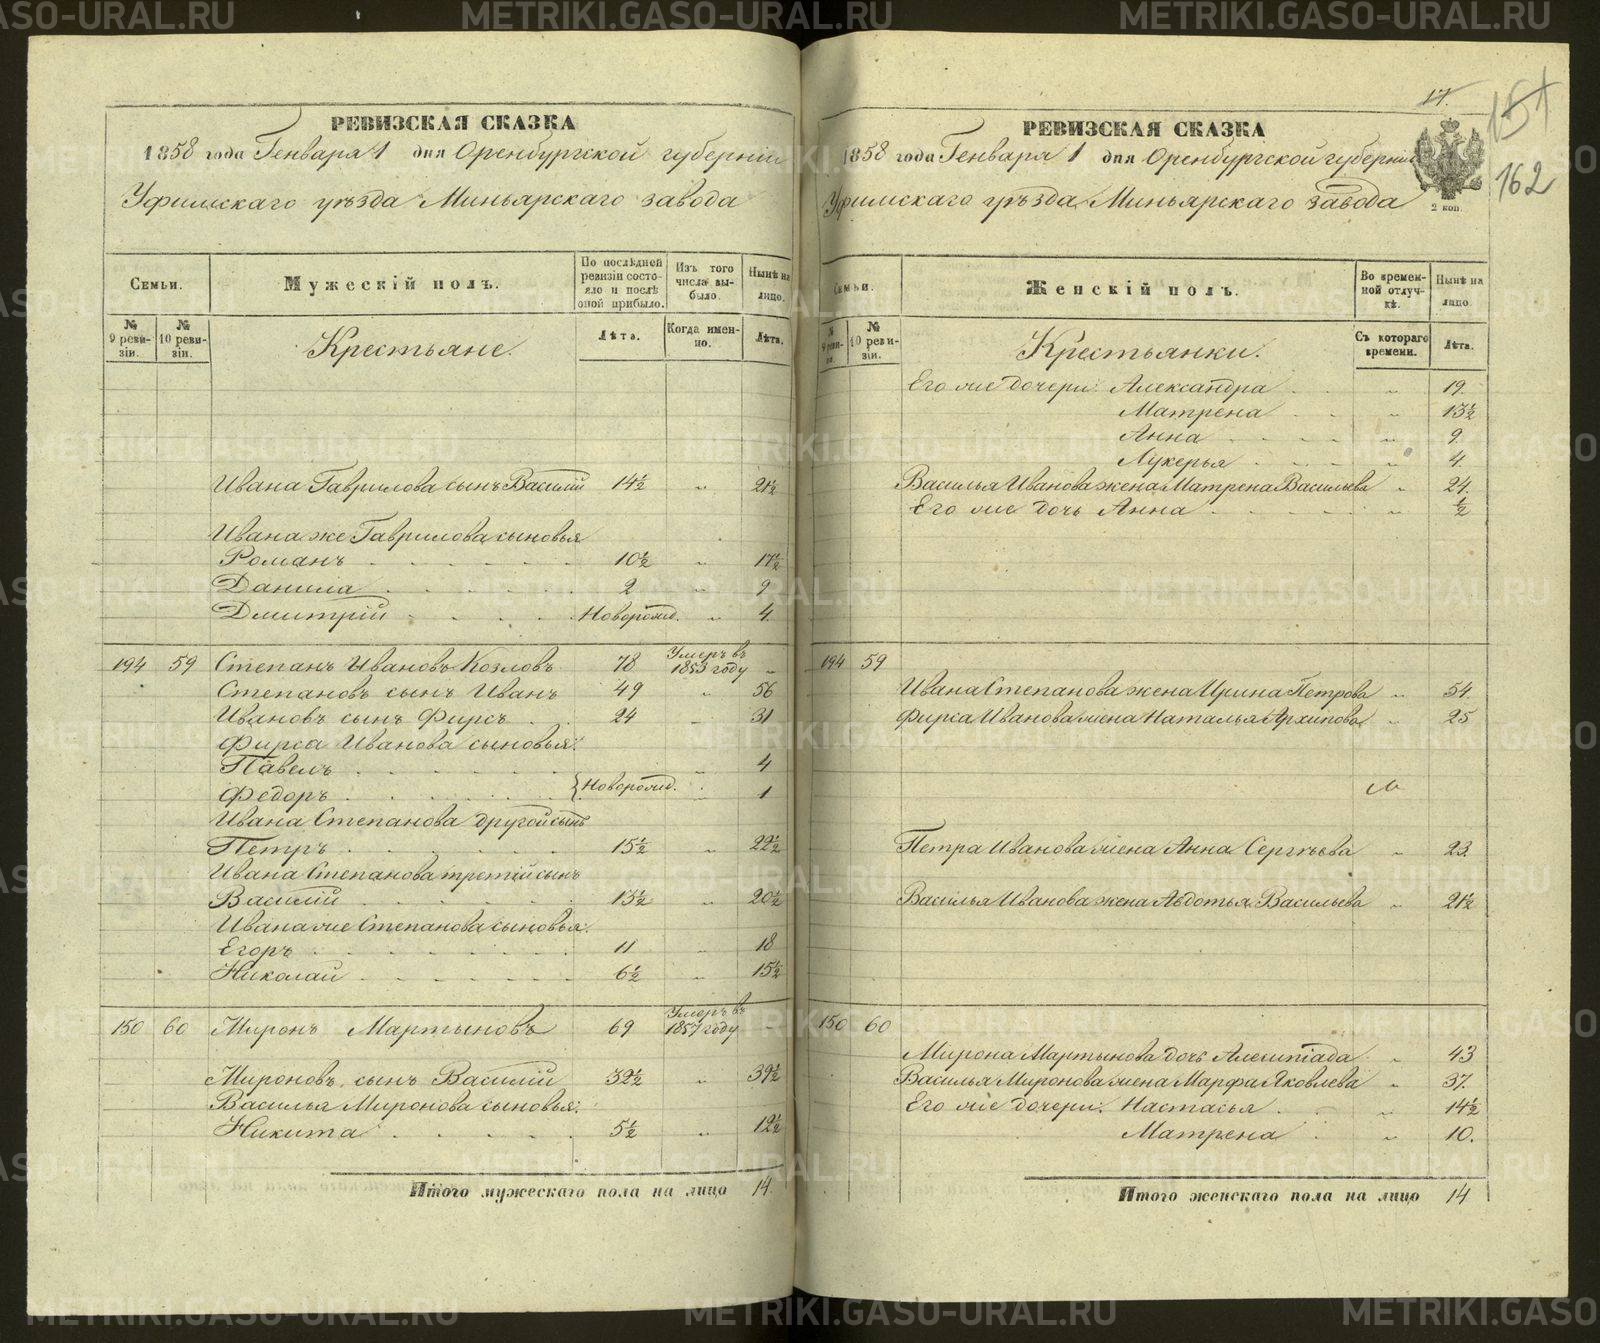 РЕВИЗСКАЯ СКАЗКА
1858 года Генваря 1 дня Оренбургской губерніи
Уфимскаго уѣзда Миньярскаго завода
Семьи.
Мужескій полъ.
По послѣдней ревизіи состояло и послѣ оной прибыло.
Изъ того числа выбыло.
Нынѣ на лицо.
№ 9 ревизіи.
№ 10 ревизіи.
Крестьяне.
Лѣта.
Когда именно.
Лѣта.
Ивана Гаврилова сынъ Василій 14½ " 21½
Ивана же Гаврилова сыновья
Романъ 10½ " 17½
Данила 2 " 9
Дмитрій Новорожд. " 4
194 59 Степанъ Ивановъ Козловъ 78 Умеръ въ 1853 году "
Степановъ сынъ Иванъ 49 " 56
Ивановъ сынъ Фирсъ 24 " 31
Фирса Иванова сыновья:
Павелъ " 4
Федоръ } Новорожд. " 1
Ивана Степанова другой сынъ
Петръ 15½ " 22½
Ивана Степанова третій сынъ
Василій 13½ " 20½
Ивана же Степанова сыновья:
Егоръ 11 " 18
Николай 6½ " 15½
150 60 Миронъ Мартыновъ 69 Умеръ въ 1857 году "
Мироновъ сынъ Василій 32½ " 39½
Василья Миронова сыновья:
Никита 5½ " 12½
Итого мужескаго пола на лицо 14.
17.
151
162
2 коп.
РЕВИЗСКАЯ СКАЗКА
1858 года Генваря 1 дня Оренбургской губерніи
Уфимскаго уѣзда Миньярскаго завода
Семьи.
Женскій полъ.
Во временной отлучкѣ.
Нынѣ на лицо.
№ 9 ревизіи.
№ 10 ревизіи.
Крестьянки.
Съ котораго времени.
Лѣта.
Его же дочери: Александра " 19.
Матрена " 13½
Анна " 9.
Лукерья " 4.
Василья Иванова жена Матрена Васильева " 24.
Его же дочь Анна " ½
194 59
Ивана Степанова жена Ирина Петрова " 54.
Фирса Иванова жена Наталья Архипова " 25
Петра Иванова жена Анна Сергѣева " 23.
Василья Иванова жена Авдотья Васильева " 21½
150 60
Мирона Мартынова дочь Алемпіада " 43
Василья Миронова жена Марфа Яковлева " 37.
Его же дочери: Настасья " 14½
Матрена " 10.
Итого женскаго пола на лицо 14
METRIKI.GASO-URAL.RU